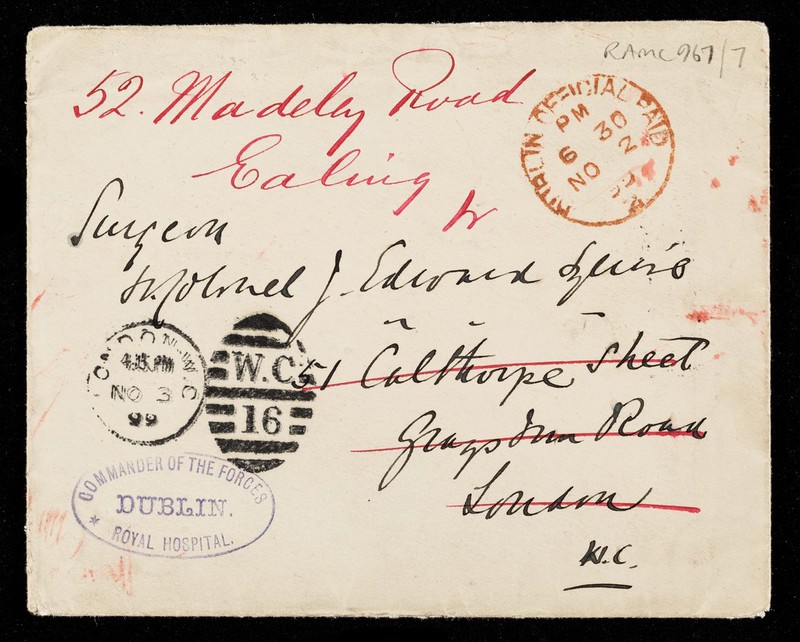 RAMC 967/7
52. Madeley Road
Ealing
W
DUBLIN OFFICIAL PAID
PM 30
6 2
NO
Surgeon
Lt. Colonel J. Edward
51 Calthorpe Street
Grays Inn Road
London
W.C.
LONDON. W.C
4.15 PM
NO 3
99
W.C
16
COMMANDER OF THE FORCES
DUBLIN.
* ROYAL HOSPITAL.